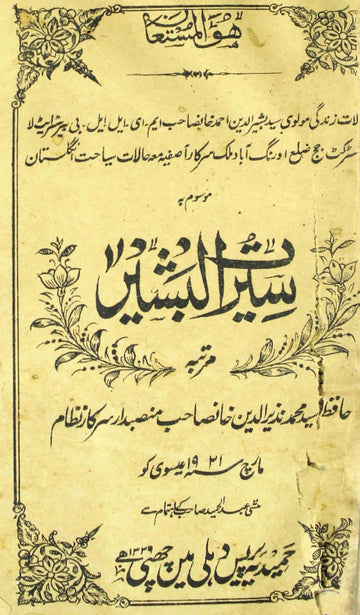 ھوالمستعان
لات زندگی مولوی سید بشیر الدین احمد خانصاحب ایم-ای-ایل-ایل-بی بیرسٹر ایٹ لا
سٹرکٹ جج ضلع اورنگ آباد ملک سرکار آصفیہ معہ حالات سیاحت انگلستان
موسوم بہ
سیرت البشیر
مرتبہ
حافظ سید محمد نذیر الدین خانصاحب منصبدار سرکار نظام
مارچ سنہ ۱۹۲۱ عیسوی کو
منشی عبدالحمید صاحب کے اہتمام سے
حمیدیہ پریس دہلی مین چھپی ۱۳۳۹ھ